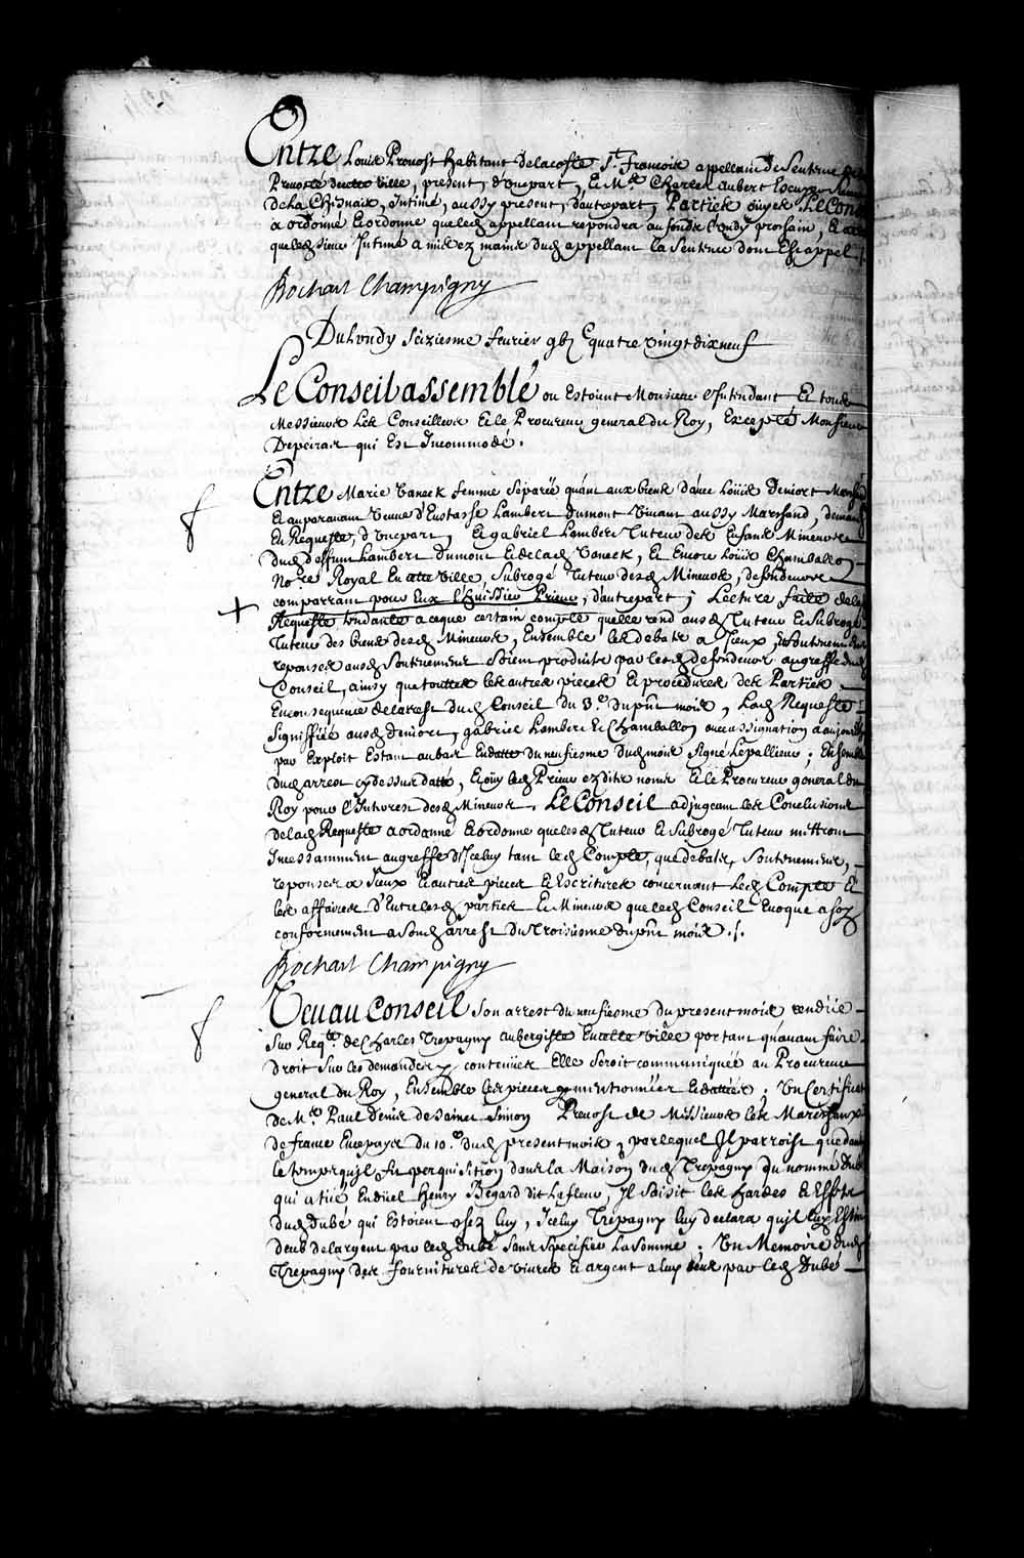 Entre Louis Prevost habitant de la coste St. Francois appellant de Sentence de la
Prevosté de cette ville, present, d'une part, Et Me. Charles Aubert Escuyer Sieur
de la Chisnaie, Intimé, aussy present, d'autre part, Parties ouyes Le Conseil
a ordonné Et ordonne que led appellant repondra au fonds lundy prochain, Et
que led sieur Intimé a mis ez mains dud appellant la Sentence dont Est appel
Bochart Champigny
Du lundy seiziesme fevrier gbjc quatre vingt dix neuf
Le Conseil assemblé ou Estoient Monsieur l'Intendant Et tous
Messieurs les Conseillers Et le Procureur general du Roy, Excepté Monsieur
Depeiras qui Est Incommodé.
Entre Marie Vaneck femme separée quant aux biens d'avec Loüis Deniort Marchand
Et auparavant Veuve d'Eustasse Lambert Dumont vivant aussy Marchand, demand
En Requeste, d'une part, Et gabriel Lambert Tuteur des Enfans Mineurs
dud deffunt Lambert Dumont Et de lad Vaneck, Et Encore Loüis Chamballon
Nore Royal En cette Ville, Subrogé Tuteur desd Mineurs, defendeurs
comparrant pour Eux l'huissier Prieur, d'autre part; Lecture faite de la
Requeste tendante a ce que certain compte quelle rend ausd Tuteur Et Subrogé
Tuteur des biens desd Mineurs, Ensemble les debats a Iceux, Soutenemens
reponses ausd Soutenemens Soient produits par lesd defendeurs au greffe dud
Conseil, ainsy que toutes les autres pieces Et procedures des Parties
En consequence de l'arrest dud Conseil du 3.e du pnt mois, Lad Requeste
Signiffiée ausd Deniort, gabriel Lambert Et Chamballon avec assignation a aujourd'huy
par Exploit Estant au bas En datte du neufiesme dud mois Signé Lepallieur; Ensemble
dud arrest cy dessus datté, Et oüy led Prieur ezdits noms Et le Procureur general du
Roy pour l'Interest desd Mineurs, Le Conseil adjugeant les Conclusions
de lad Requeste a ordonné Et ordonne que lesd Tuteur Et Subrogé Tuteur mettront
Incessamment au greffe d'Iceluy tant led Compte, que debats, Soutenemens,
reponses a Iceux Et autres pieces Et Escritures concernant led Compte Et
les affaires d'Entre lesd parties Et Mineurs que led Conseil Evoque a soy
conformement a Sond arrest du Troisiesme du pnt mois ./.
Bochart Champigny
Veu au Conseil Son arrest du neufiesme du present mois rendüe
Sur Reqte. de Charles Trepagny aubergiste En cette Ville portant qu'avant faire
droit Sur les demandes y contenües Elle Seroit communiquée au Procureur
general du Roy, Ensemble les pieces y mentionnées Et dattées; Un Certificat
de Me. Paul Denis de Saint Simon Prevost de Messieurs les Mareschaux
de france En ce pays du 10.e dud present mois, par lequel Il parroist que dans
le temps qu'il fit perquisition dans la Maison dud Trepagny du nommé Dubé
qui a tué En duel Henry Begard dit Lafleur, Il Saisit les hardes & Effets
dud Dubé qui Estoient chez luy, Iceluy Trepagny luy declara qu'il luy Estoit
deub de l'argent par led Dubé Sans Specifier La Somme; Un Memoire dud
Trepagny des fournitures de vivres Et argent a luy deub par led Dubé